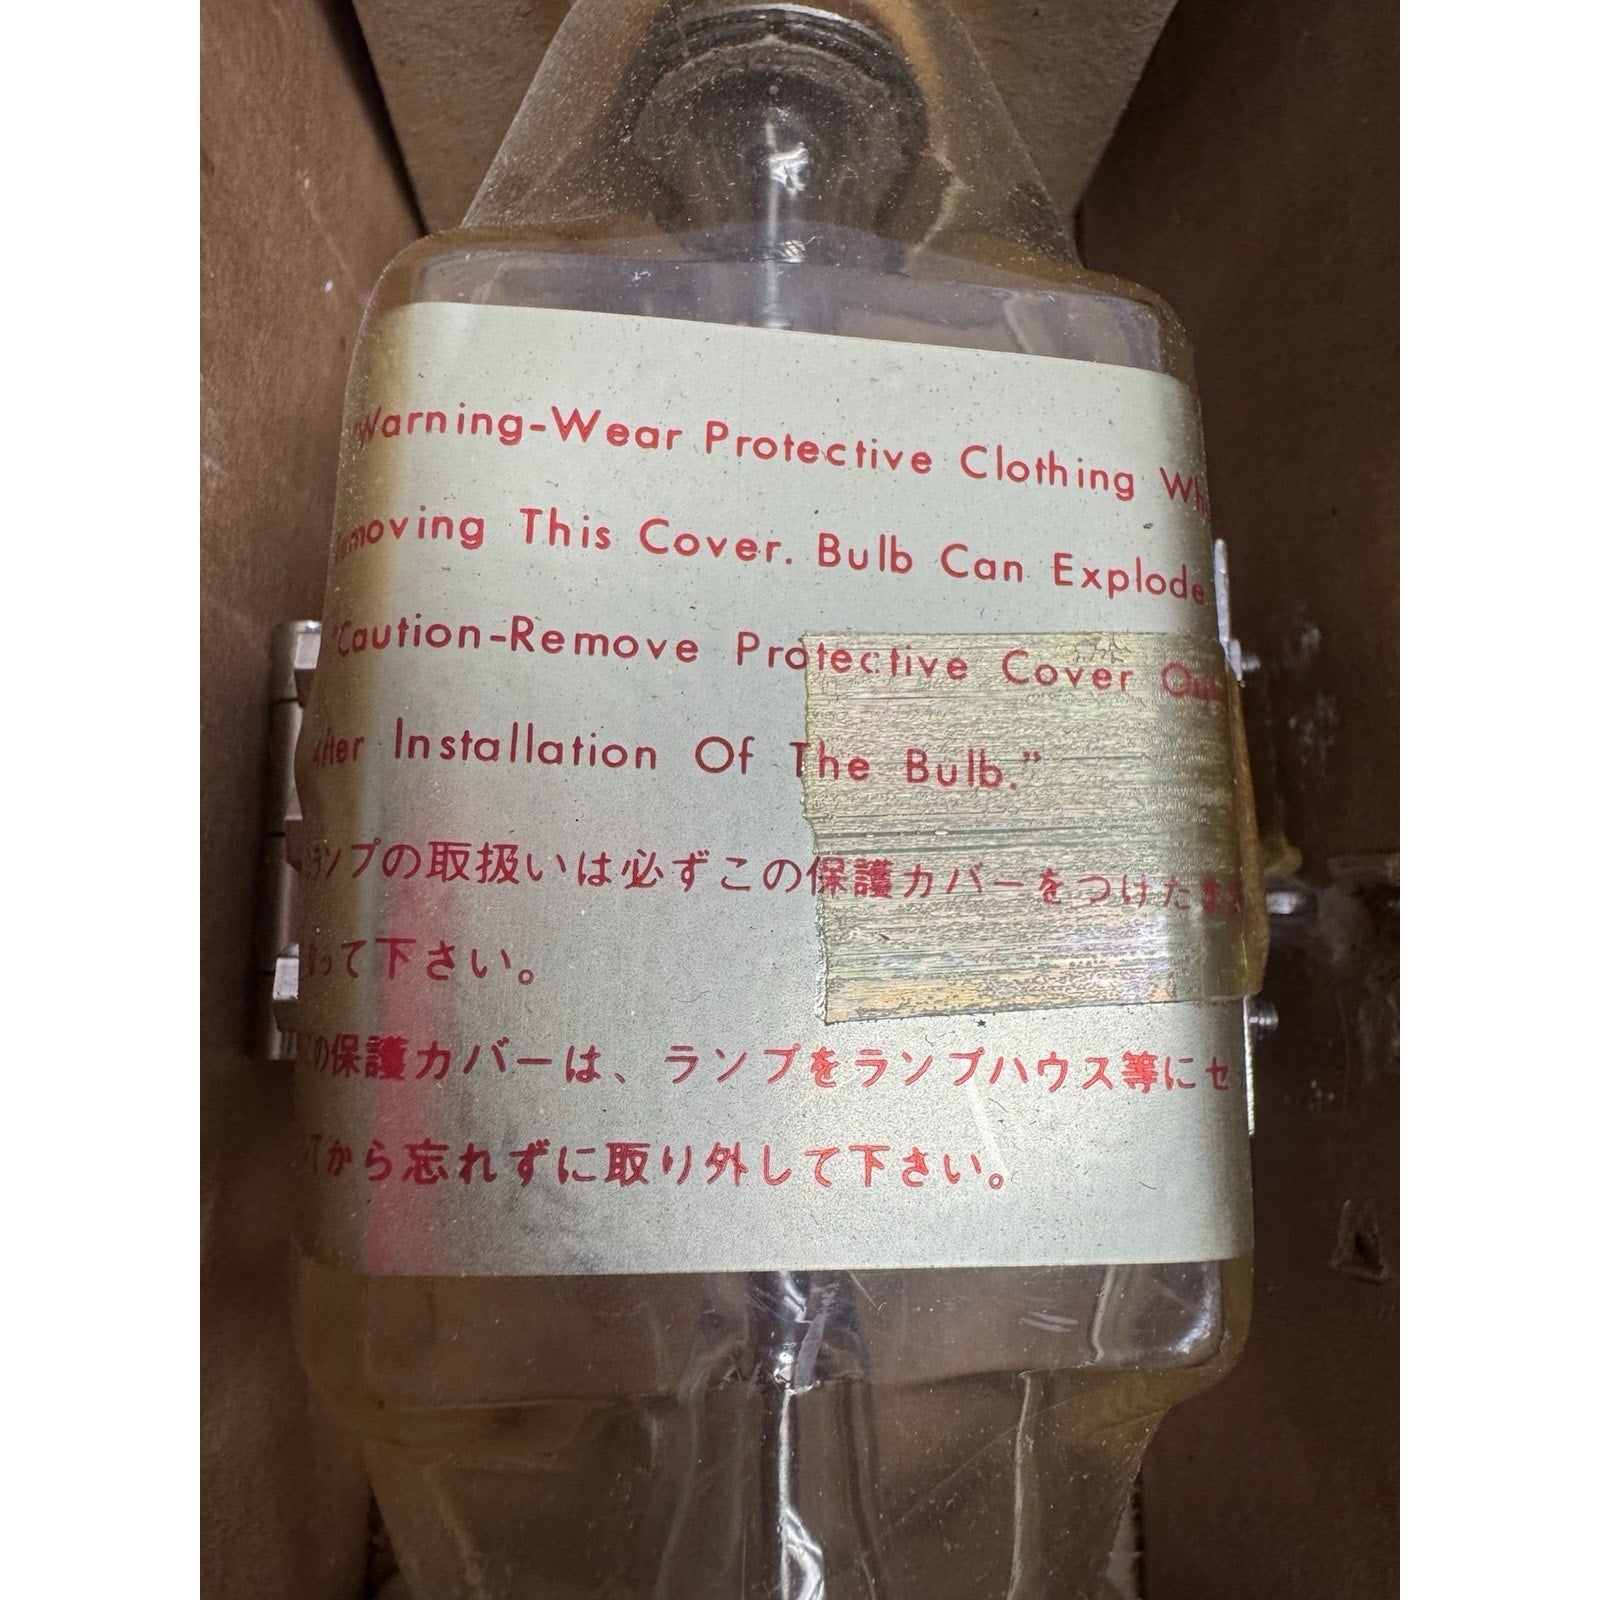 Warning-Wear Protective Clothing Wh
moving This Cover. Bulb Can Explode.
"Caution-Remove Protective Cover On
After Installation Of The Bulb."
ランプの取扱いは必ずこの保護カバーをつけたまま
って下さい。
この保護カバーは、ランプをランプハウス等にセ
てから忘れずに取り外して下さい。